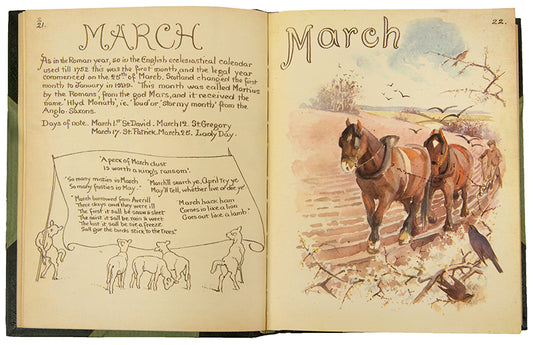 21.
MARCH
As in the Roman year, so in the English ecclesiastical calendar
used till 1752 this was the first month, and the legal year
commenced on the 25th of March. Scotland changed the first
month to January in 1599. This month was called Martius
by the Romans, from the god Mars, and it received the
name 'Hyd Monath', i.e. 'loud' or 'stormy month' from the
Anglo-Saxons.
Days of note. March 1st St David. March 12. St Gregory
March 17. St. Patrick. March 25. Lady Day.
'A peck of March dust
is worth a king's ransom'.
'So many misties in March
So many frosties in May.'
'March'll search ye, April try ye.
May'll tell, whether live or die ye'
'March borrowed from Averill
Three days and they were ill
The first it sall be snaw & sleet
The next it sall be rain & weet
The last it sall be sic a freeze
Sall gar the birds stick to the trees'
'March hack ham
Comes in like a lion
Goes out like a lamb.'
22.
March